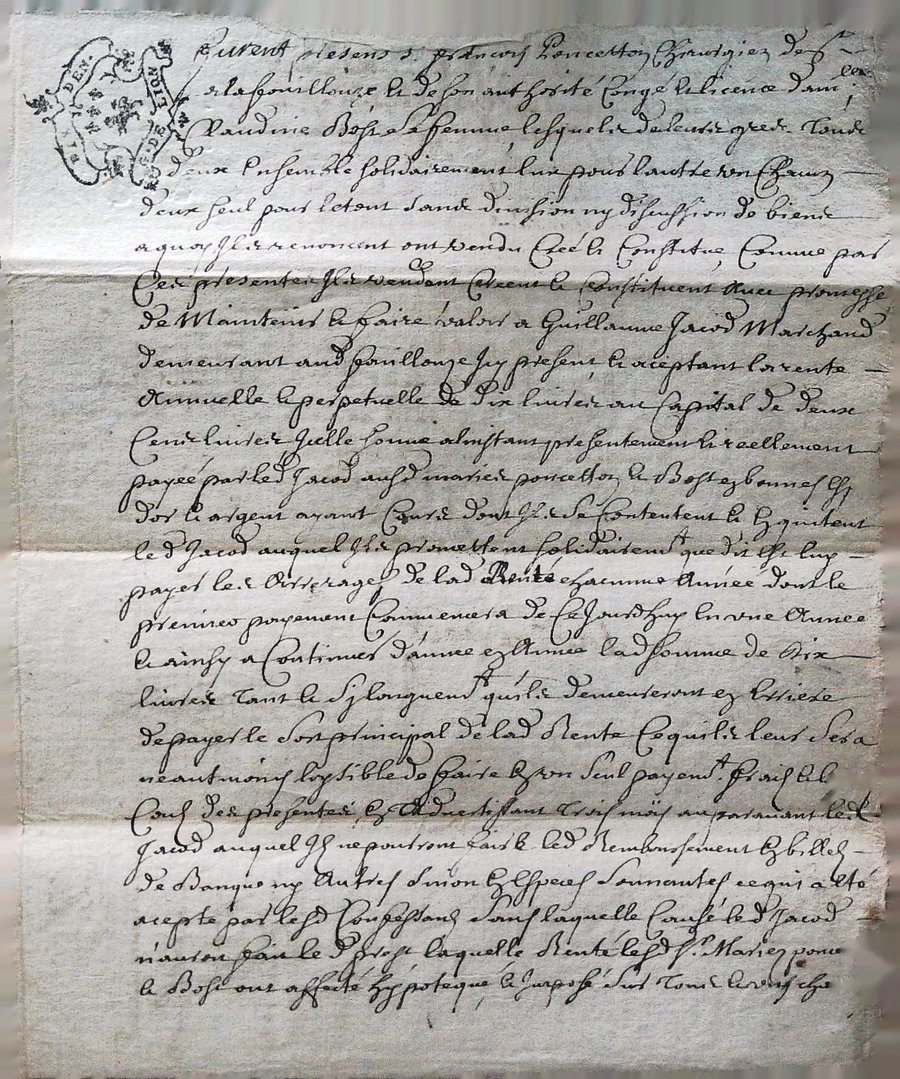 Furent presens s. françois Poncetton Chirurgien de
a la fouillouze & de son authorité Congé & licence dam
Claudine Bost sa femme lesquels de leurs grez Tous
deux Ensemble solidairement lun pour lautre un Chacun
deux seul pour letout sans division ny discussion de biens
a quoy Ils renoncent ont vendu Creé & Constitué Comme par
Ces presentes Ils vendent Créent & Constituent Avec promesse
de Maintenir & faire valoir a Guillaume Jacod Marchand
demeurant aud fouillouze Icy present, & aceptant la rente
Annuelle & perpetuelle de dix livres au Capital de deux
Cens livres Icelle somme alinstant presentement & reellement
payée par led Jacod ausd mariés poncetton & Bost en bonnes Esp
dor & argent ayant Cours dont Ils se Contentent & En quitent
led Jacod auquel Ils promettent solidairemt que dit Est luy
payer les Arrerages de lad Rente chacune Année dont le
premier payement Commencera de Cejourdhuy En une Année
& ainsy a Continuer d'année en Année lad somme de Dix
livres Tant & sy longuemt quils demeureront en Arriere
de payer le Sort principal de lad Rente Ce quils leur sera
neantmoins loysible de faire En un Seul payemt. frais &
Cous des presentes, En advertissant Trois mois auparavant led
Jacod auquel Ils ne pourront faire led Remboursement En billes
de Banque ny Autres Sinon En Especes Sonnantes ce qui a Eté
acepté par lesd Confessans Sans laquelle Cause led Jacod
n'auroit fait led prest laquelle Rente lesd Srs Mariez ponce
& Bost ont affecté hypotequé & Imposé Sur Tous & uns cha